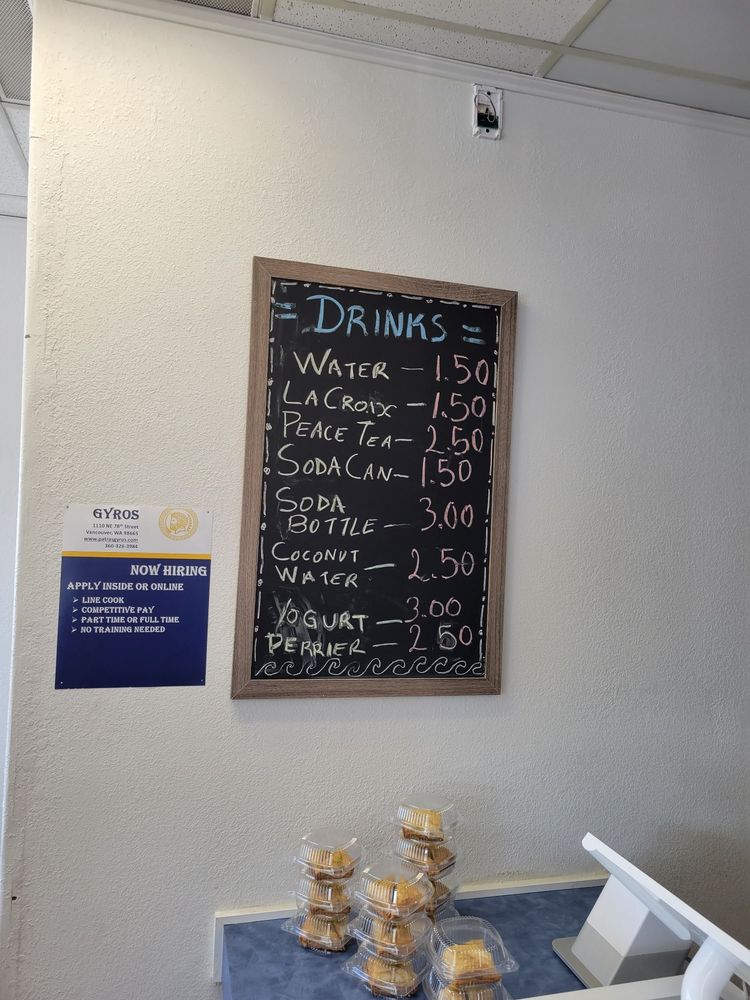 = DRINKS =
WATER — 1.50
LACROIX — 1.50
PEACE TEA — 2.50
SODA CAN — 1.50
SODA
BOTTLE — 3.00
COCONUT
WATER — 2.50
YOGURT — 3.00
PERRIER — 2.50
GYROS
1110 NE 78th Street
Vancouver, WA 98665
www.patrasgyros.com
360-326-3984
NOW HIRING
APPLY INSIDE OR ONLINE
➢ LINE COOK
➢ COMPETITIVE PAY
➢ PART TIME OR FULL TIME
➢ NO TRAINING NEEDED